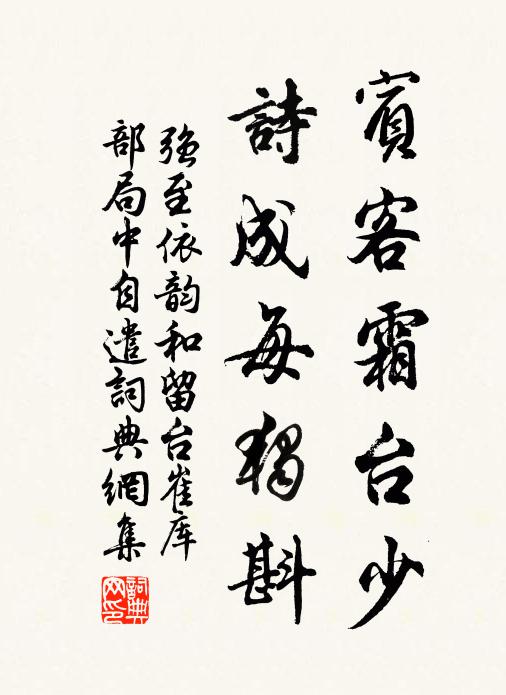 賓客霜台少
詩成每獨斟
強至依韵和留台崔库
部局中自遣詞典網集
詞典网印